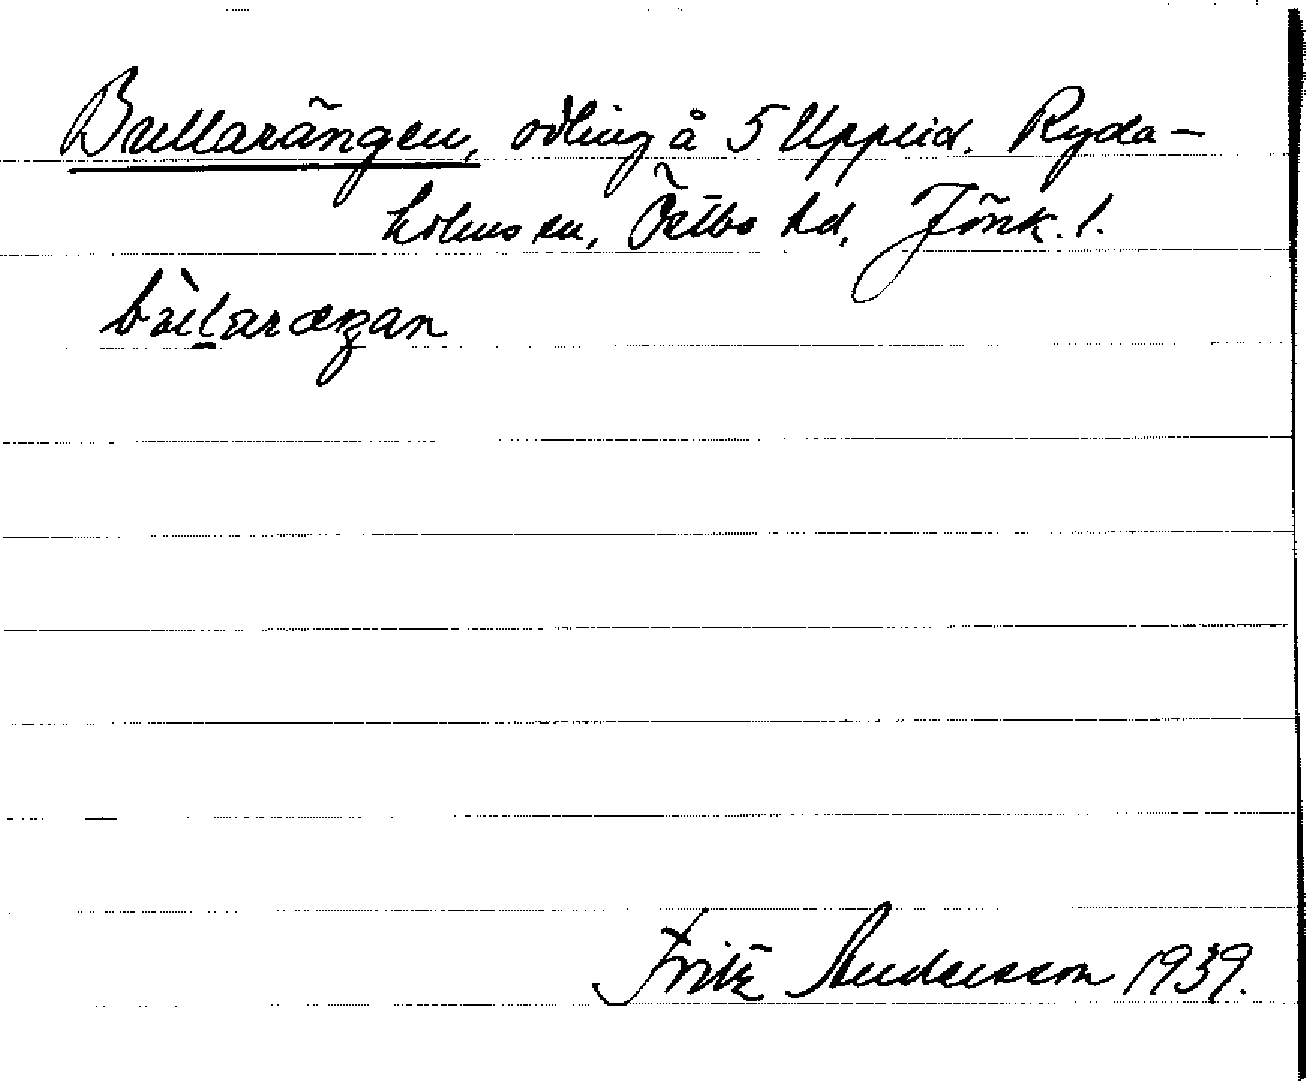 Bullarängen, odling å 5 Uppeid. Ryda-
holms sn, Östbo hd, Jönk. l.
Fritz Andersson 1939.